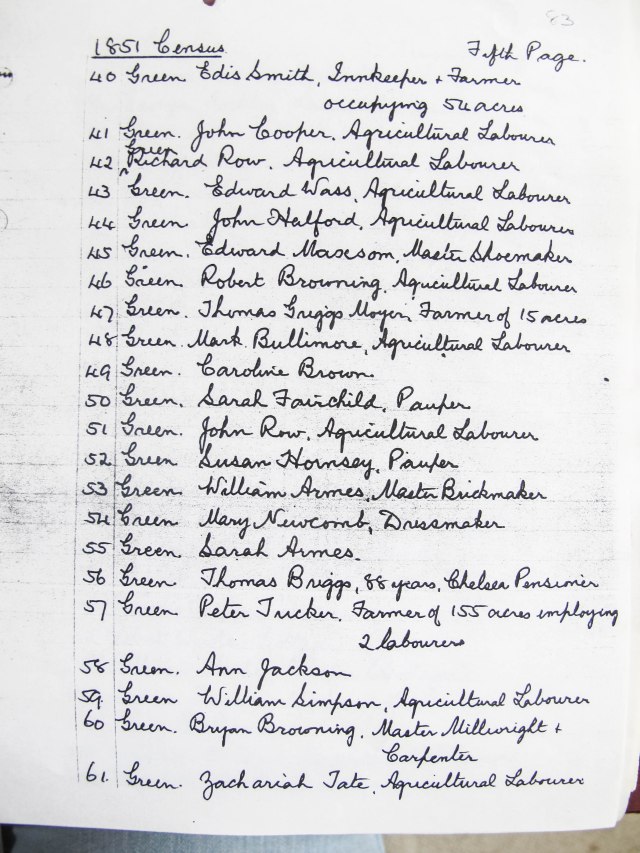 83
1851 Census Fifth Page.
40 Green Edis Smith, Innkeeper + Farmer
occupying 54 acres
41 Green. John Cooper. Agricultural Labourer
42 Green Richard Row. Agricultural Labourer
43 Green. Edward Wass, Agricultural Labourer
44 Green John Halford, Agricultural Labourer
45 Green. Edward Maxsom, Master Shoemaker
46 Green Robert Browning, Agricultural Labourer
47 Green. Thomas Griggs Moyer, Farmer of 15 acres
48 Green. Mark Bullimore, Agricultural Labourer
49 Green. Caroline Brown
50 Green. Sarah Fairchild, Pauper
51 Green. John Row. Agricultural Labourer
52 Green Susan Hornsey, Pauper
53 Green William Armes, Master Brickmaker
54 Green Mary Newcomb, Dressmaker
55 Green. Sarah Armes.
56 Green Thomas Briggs, 88 years, Chelsea Pensioner
57 Green Peter Tucker, Farmer of 155 acres employing
2 labourers
58 Green. Ann Jackson
59 Green William Simpson, Agricultural Labourer
60 Green. Bryan Browning, Master Millwright +
Carpenter
61. Green. Zachariah Tate, Agricultural Labourer